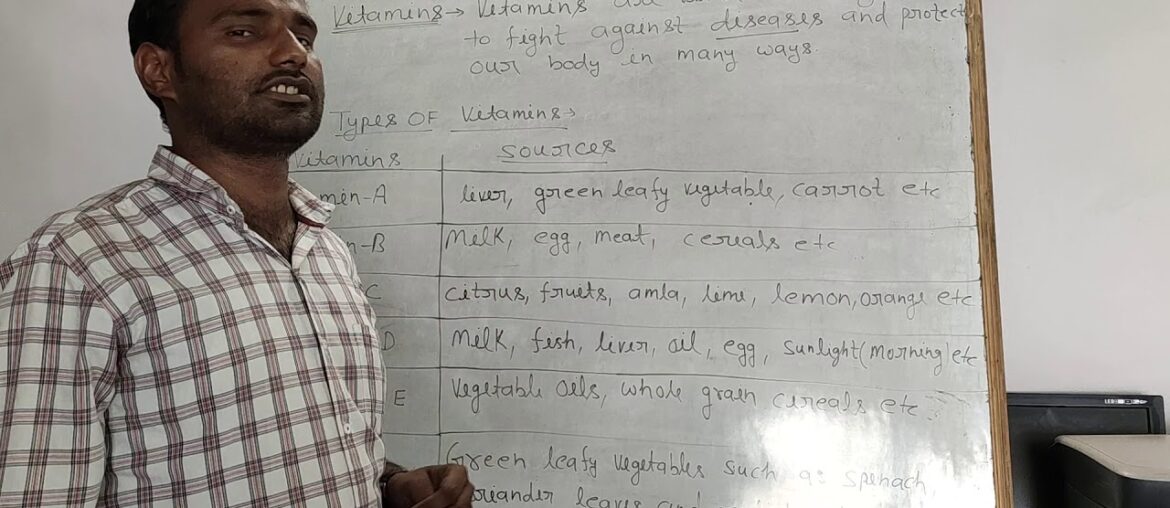 Vitamins → Vitamins
to fight against diseases and protect
our body in many ways.
Types OF Vitamins →
Vitamins Sources
min-A liver, green leafy vegetable, carrot etc
n-B Milk, egg, meat, cereals etc
C citrus, fruits, amla, lime, lemon, orange etc
D Milk, fish, liver, oil, egg, sunlight (morning) etc
E Vegetable oils, whole grain cereals etc
Green leafy vegetables such as spenach,
oriander leaves and